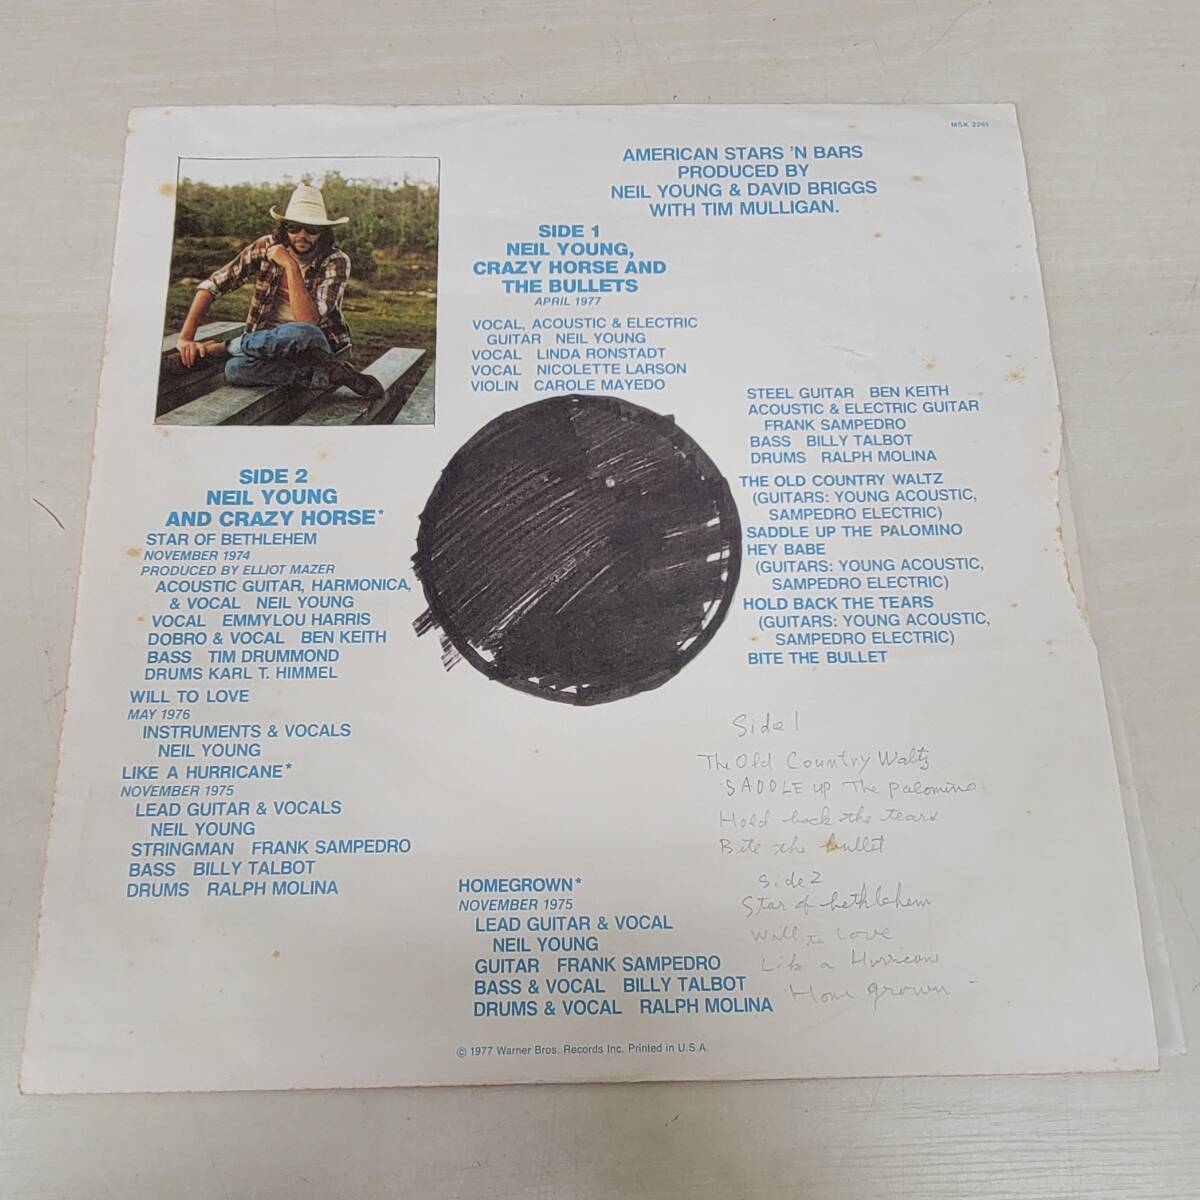 MSK 2261
AMERICAN STARS 'N BARS
PRODUCED BY
NEIL YOUNG & DAVID BRIGGS
WITH TIM MULLIGAN.
SIDE 1
NEIL YOUNG,
CRAZY HORSE AND
THE BULLETS
APRIL 1977
VOCAL, ACOUSTIC & ELECTRIC
GUITAR NEIL YOUNG
VOCAL LINDA RONSTADT
VOCAL NICOLETTE LARSON
VIOLIN CAROLE MAYEDO
STEEL GUITAR BEN KEITH
ACOUSTIC & ELECTRIC GUITAR
FRANK SAMPEDRO
BASS BILLY TALBOT
DRUMS RALPH MOLINA
THE OLD COUNTRY WALTZ
(GUITARS: YOUNG ACOUSTIC,
SAMPEDRO ELECTRIC)
SADDLE UP THE PALOMINO
HEY BABE
(GUITARS: YOUNG ACOUSTIC,
SAMPEDRO ELECTRIC)
HOLD BACK THE TEARS
(GUITARS: YOUNG ACOUSTIC,
SAMPEDRO ELECTRIC)
BITE THE BULLET
SIDE 2
NEIL YOUNG
AND CRAZY HORSE*
STAR OF BETHLEHEM
NOVEMBER 1974
PRODUCED BY ELLIOT MAZER
ACOUSTIC GUITAR, HARMONICA,
& VOCAL NEIL YOUNG
VOCAL EMMYLOU HARRIS
DOBRO & VOCAL BEN KEITH
BASS TIM DRUMMOND
DRUMS KARL T. HIMMEL
WILL TO LOVE
MAY 1976
INSTRUMENTS & VOCALS
NEIL YOUNG
LIKE A HURRICANE*
NOVEMBER 1975
LEAD GUITAR & VOCALS
NEIL YOUNG
STRINGMAN FRANK SAMPEDRO
BASS BILLY TALBOT
DRUMS RALPH MOLINA
HOMEGROWN*
NOVEMBER 1975
LEAD GUITAR & VOCAL
NEIL YOUNG
GUITAR FRANK SAMPEDRO
BASS & VOCAL BILLY TALBOT
DRUMS & VOCAL RALPH MOLINA
Side 1
The Old Country Waltz
SADDLE UP The palomino
Hold back the tears
Bite the bullet
Side 2
Star of bethlehem
Will to Love
Like a Hurricane
Home grown
© 1977 Warner Bros. Records Inc. Printed in U.S.A.